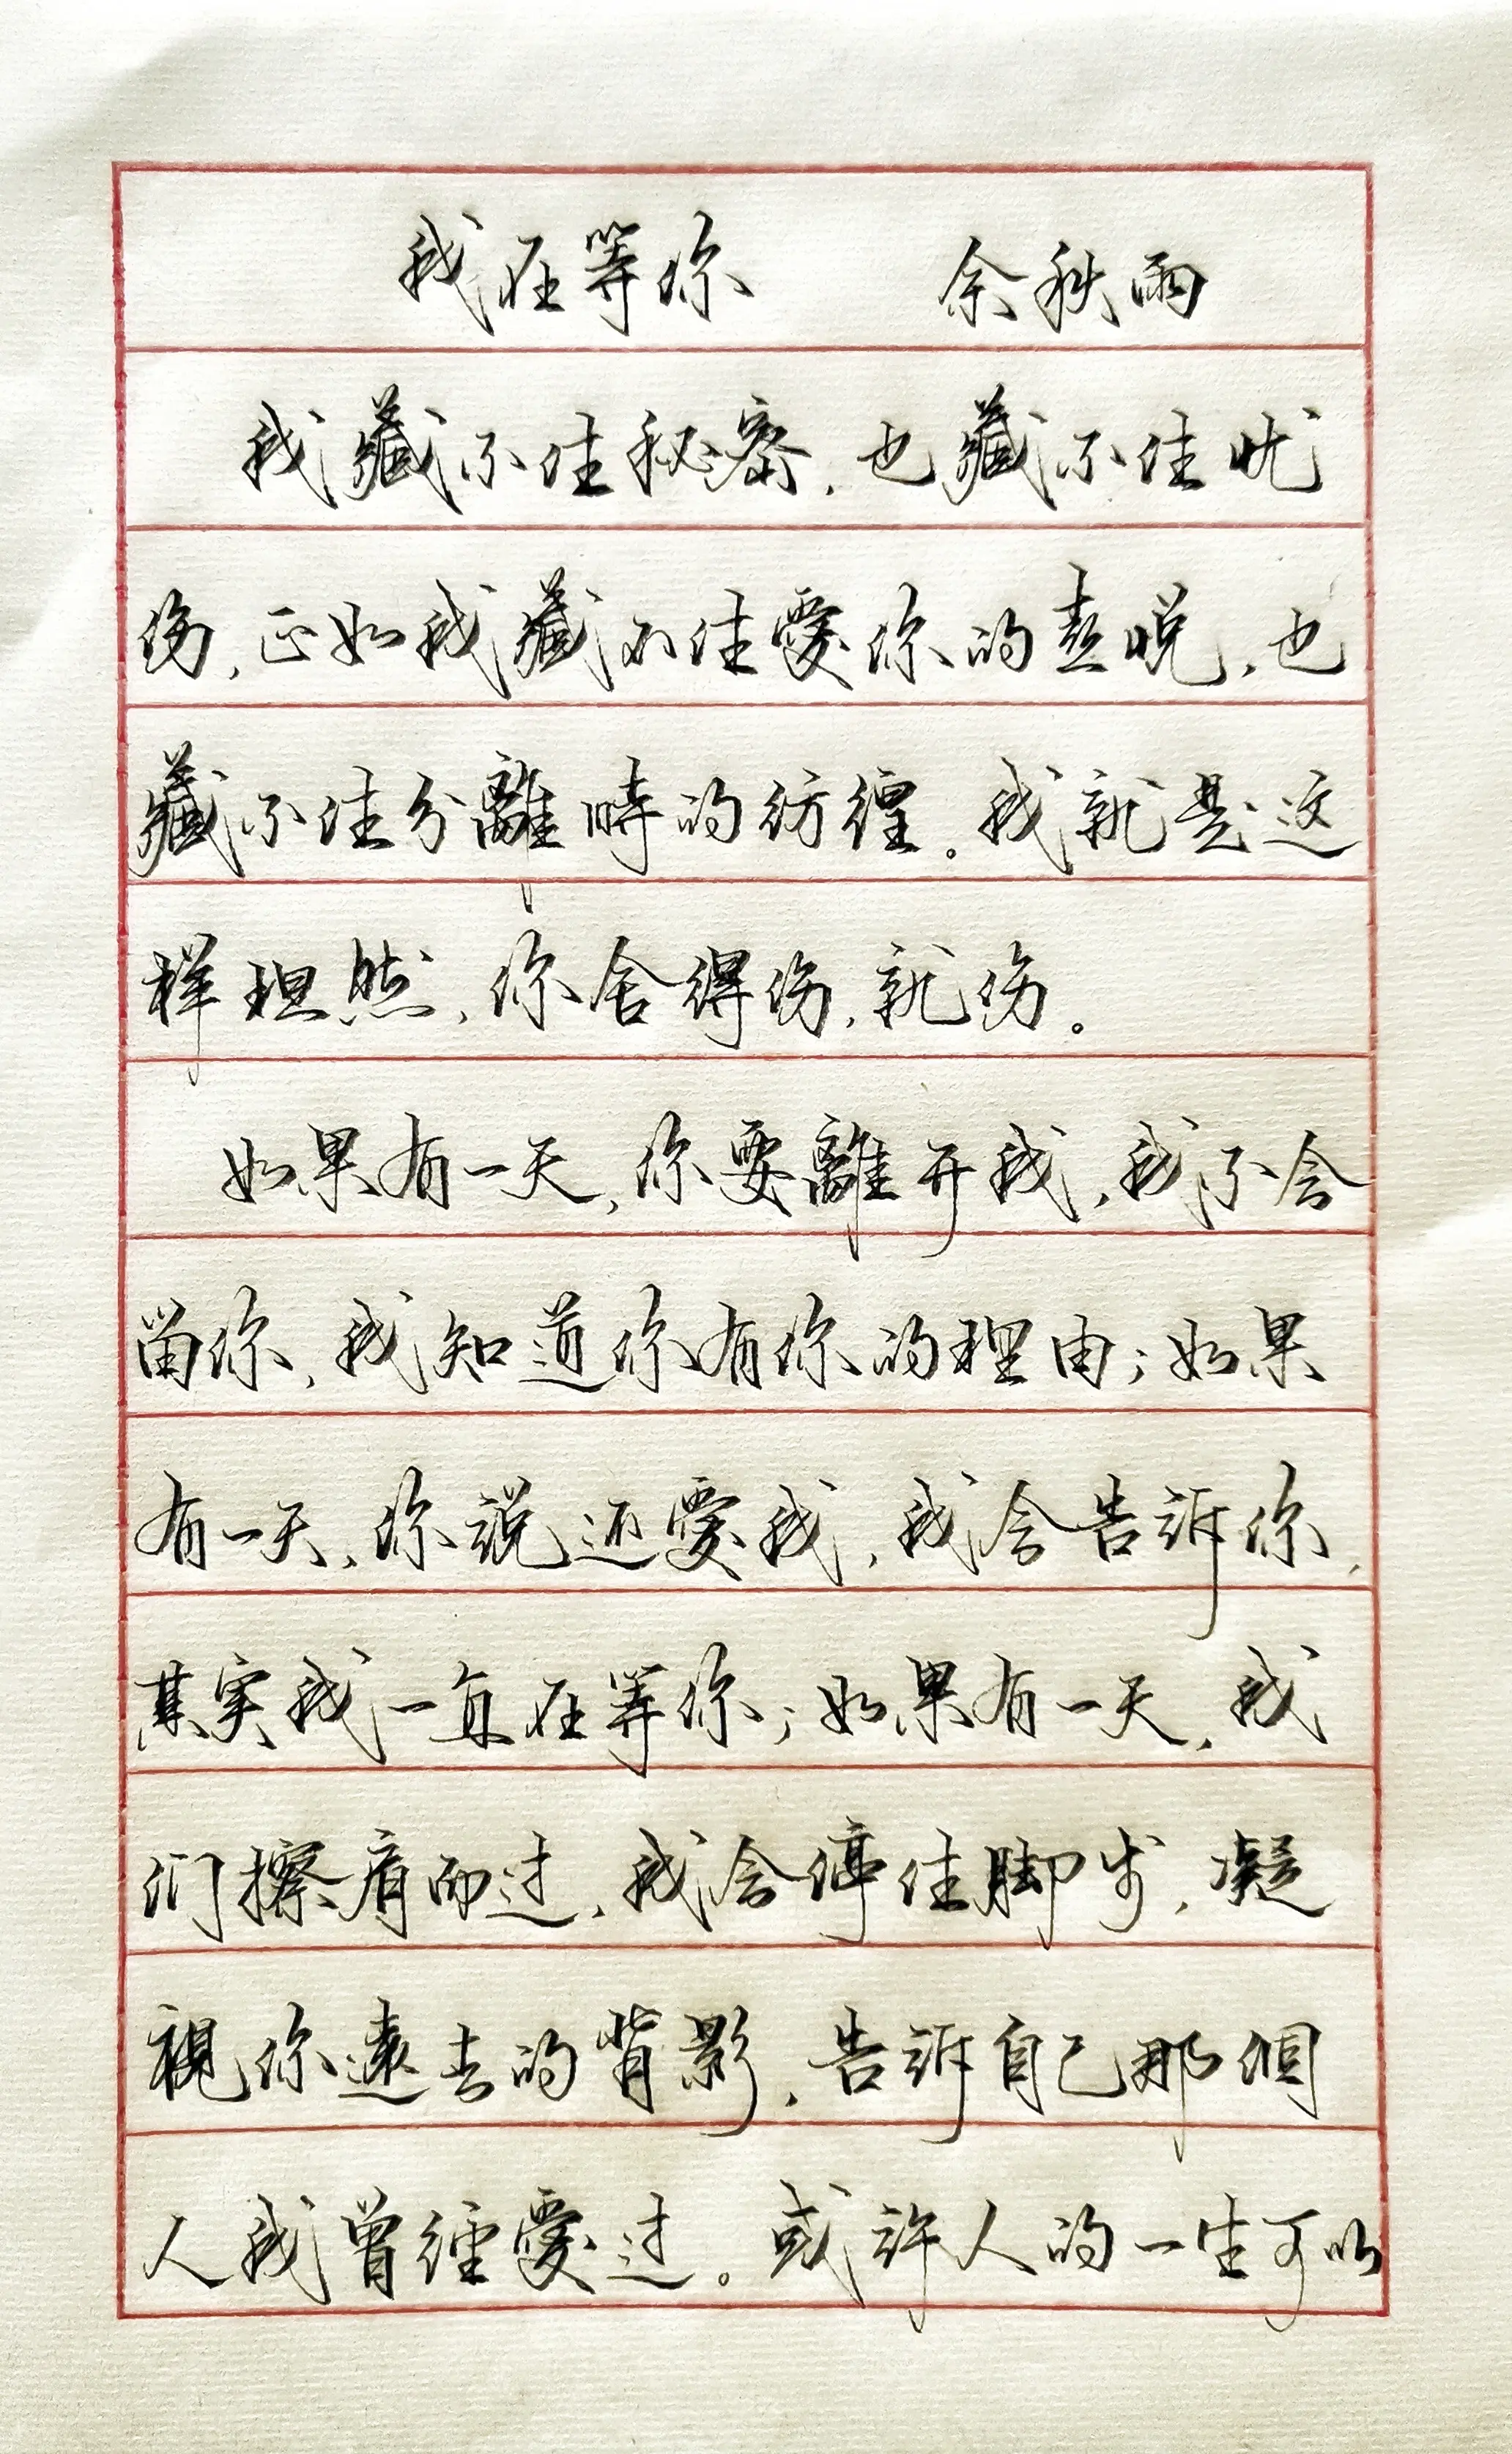 我在等你 余秋雨
我藏不住秘密，也藏不住忧
伤，正如我藏不住爱你的喜悦，也
藏不住分離時的彷徨。我就是这
样坦然，你舍得伤，就伤。
如果有一天，你要離开我，我不会
留你，我知道你有你的理由；如果
有一天，你說还愛我，我会告訴你，
其实我一直在等你；如果有一天，我
们擦肩而过，我会停住脚步，凝
視你遠去的背影，告訴自己那個
人我曾經愛过。或許人的一生可以